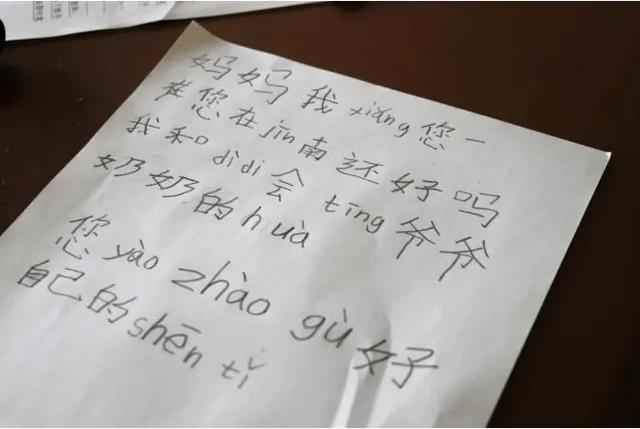 妈妈我xiǎng您一
在您在jǐn南还好吗
我和dìdi会tīng爷爷
奶奶的huà
您yào zhào gù好
自己的shēn tǐ